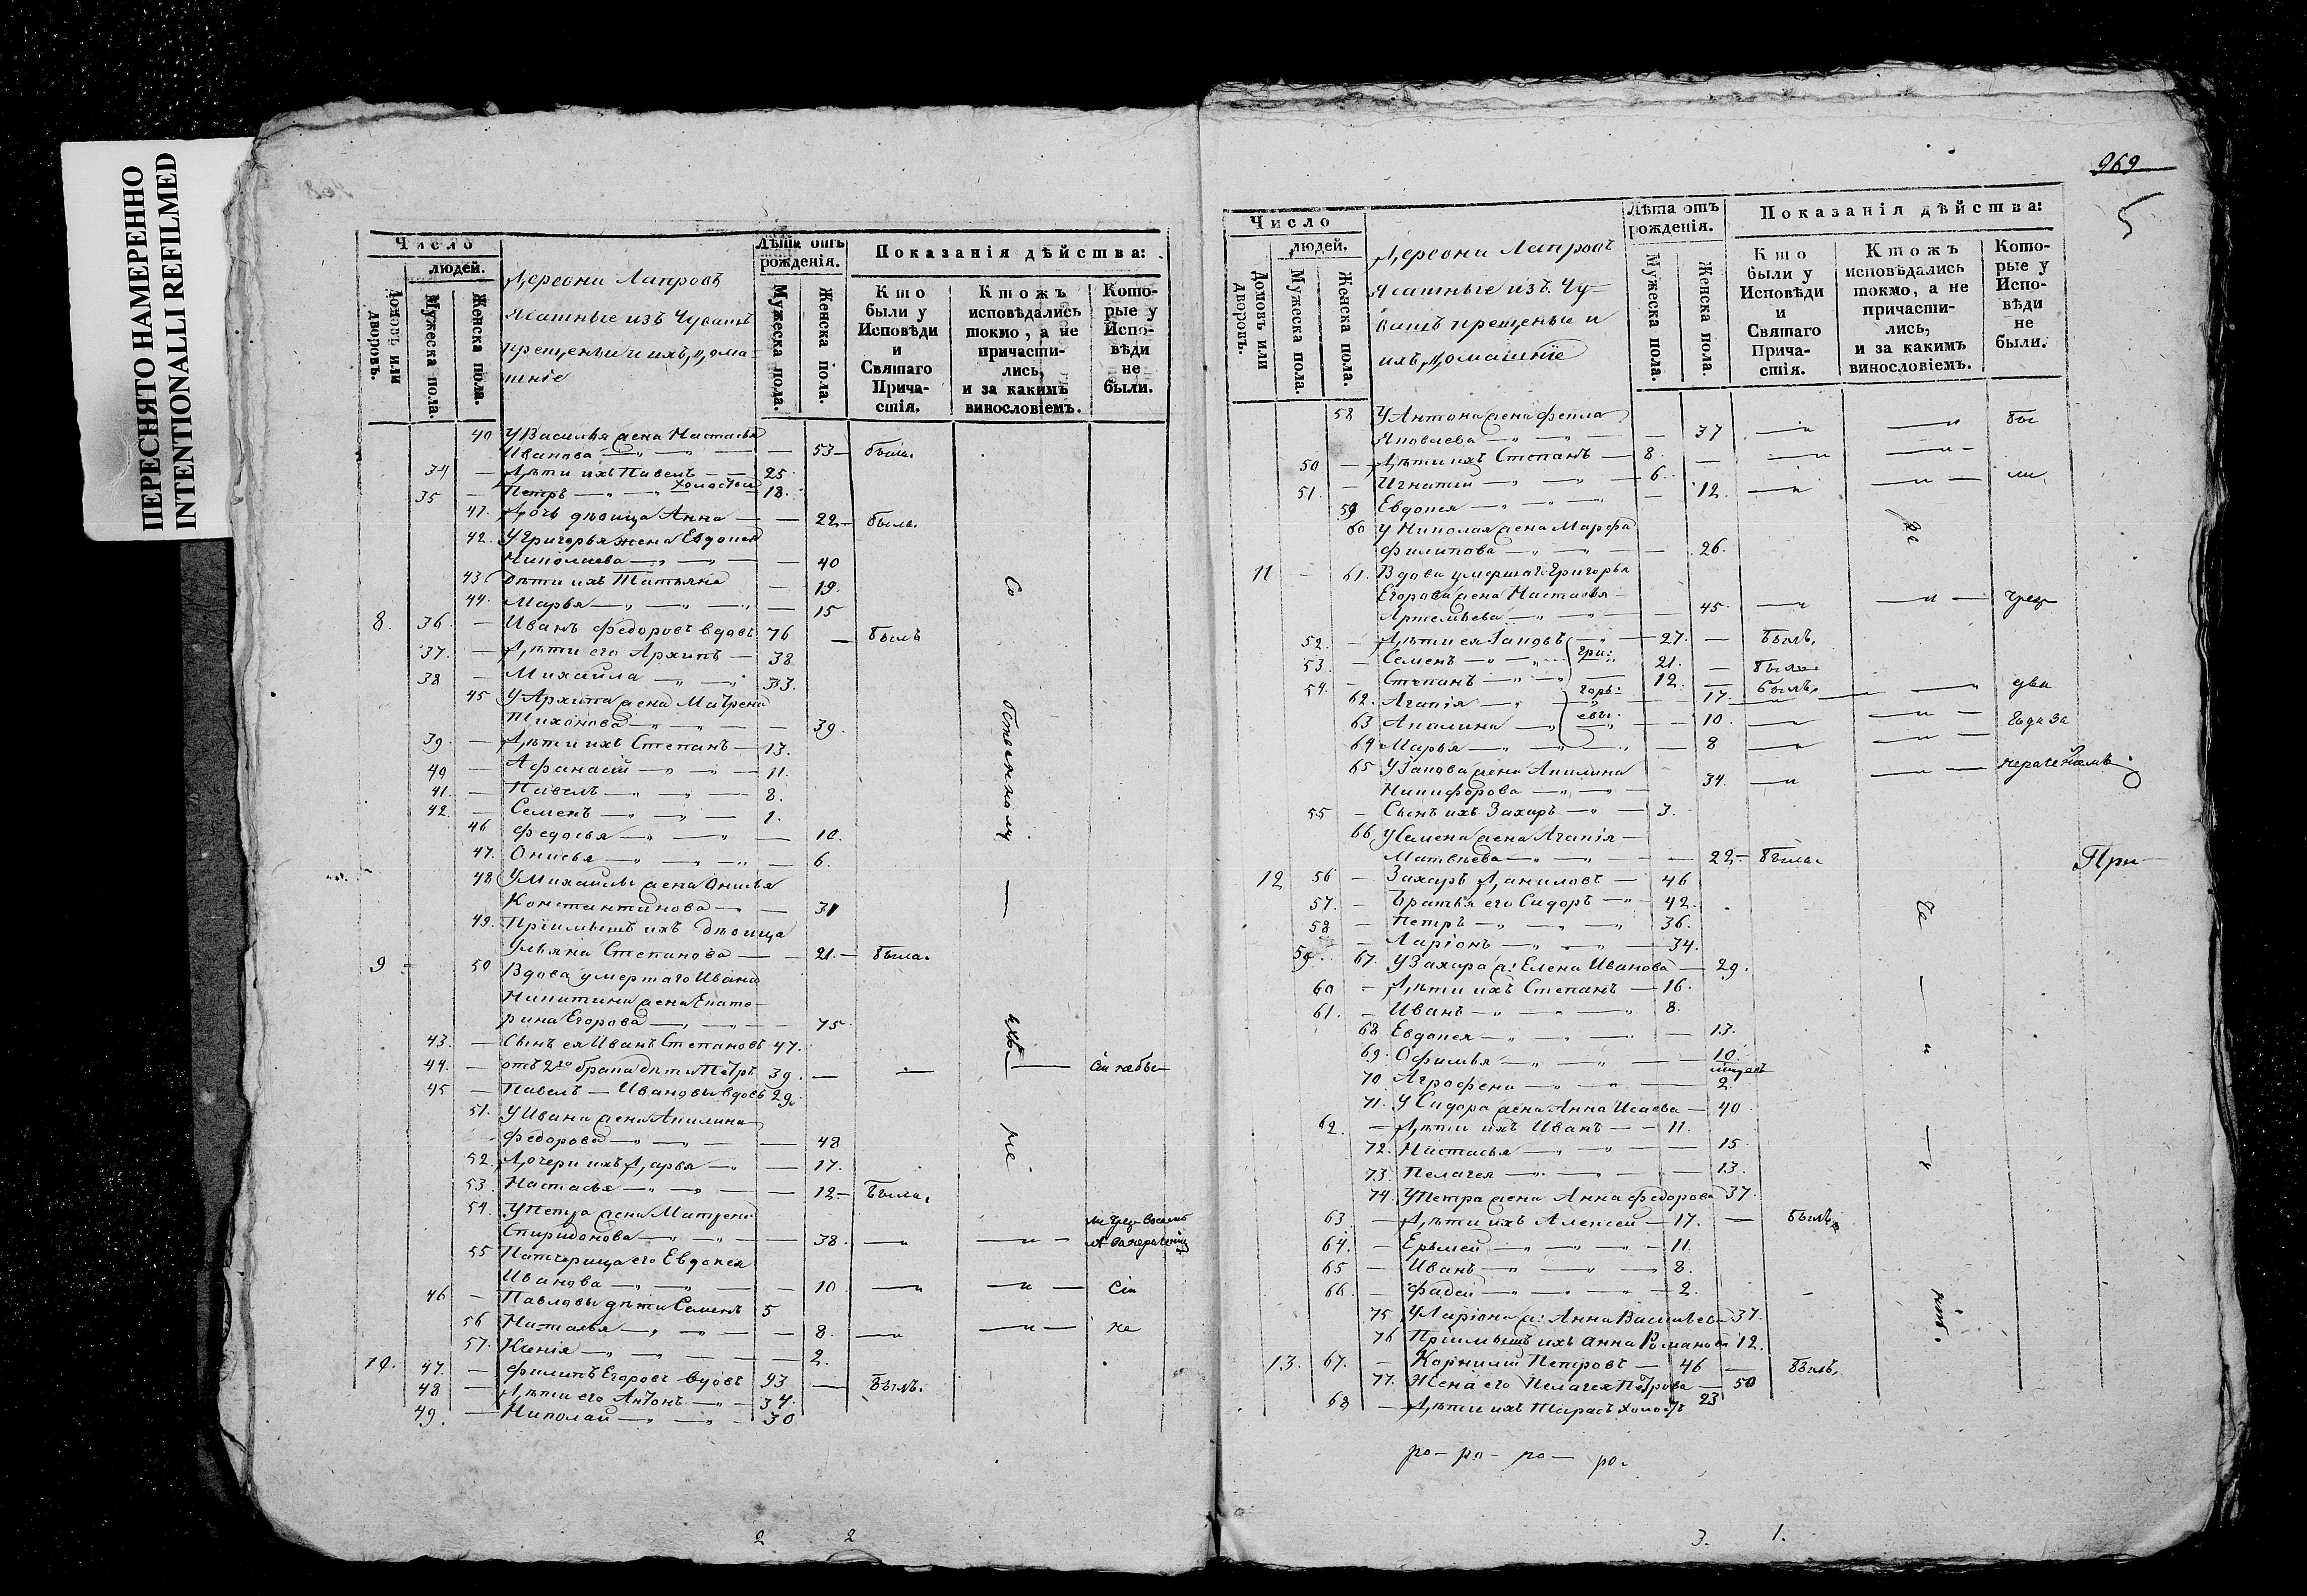 ПЕРЕСНЯТО НАМЕРЕННО
INTENTIONALLI REFILMED
Число
людей.
Домовъ или дворовъ.
Мужеска пола.
Женска пола.
Деревни Лапровъ
Ясашные изъ Чувашъ
крещеные и ихъ дома-
шніе
Лѣта отъ рожденія.
Мужеска пола.
Женска пола.
Показанія дѣйства:
Кто были у Исповѣди и Святаго Прича-стія.
Ктожъ исповѣдались токмо, а не причасти-лись, и за какимъ винословіемъ.
Кото-рые у Испо-вѣди не были.
40 У Василья жена Настасья
Иванова — 53 — была.
34 — Дѣти ихъ Павелъ — 25.
35 — Петръ — холостые 18.
41. Дочь дѣвица Анна — 22 — была.
42. У Григорья жена Евдокея
Николаева — 40
43 Дѣти ихъ Татьяна — 19.
44. Марья — 15
8. 36. — Иванъ Федоровъ вдовъ 76 — былъ
37. — Дѣти его Архипъ — 38
38 — Михайла — 33.
45 У Архипа жена Матрена
Тихонова — 39.
39. — Дѣти ихъ Степанъ — 13.
40 — Афанасій — 11.
41. — Павелъ — 8.
42. — Семенъ — 1.
46 Федосья — 10.
47. Онисья — 6.
48 У Михайлы жена Онисья
Константинова — 31
49. Пріимышъ ихъ дѣвица
Ульяна Степанова — 21. — была.
9 50 Вдова умершаго Ивана
Никитина жена Екате-
рина Егорова — 75
43. — Сынъ ея Иванъ Степановъ 47.
44. — отъ 2го брака дѣти Петръ 39. —
45 — Павелъ — Ивановы вдовъ 29.
51. У Ивана жена Акилина
Федорова — 48
52. Дочери ихъ Дарья — 17.
53. Настасья — 12 — была.
54. У Петра жена Матрена
Спиридонова — 38.
55 Патчерица его Евдокея
Иванова — 10 — сіи
46 — Павловы дѣти Семенъ 5
56 Наталья — 8. — не
57. Ксенія — 2.
10. 47. — Филипъ Егоровъ вдовъ 93 — былъ.
48 — Дѣти его Антонъ — 34.
49. — Николай — 30
2 2
969
5
Число
людей.
Домовъ или дворовъ.
Мужеска пола.
Женска пола.
Деревни Лапровъ
Ясашные изъ Чу-
вашъ крещеные и
ихъ домашніе
Лѣта отъ рожденія.
Мужеска пола.
Женска пола.
Показанія дѣйства:
Кто были у Исповѣди и Святаго Прича-стія.
Ктожъ исповѣдались токмо, а не причасти-лись, и за какимъ винословіемъ.
Кото-рые у Испо-вѣди не были.
58 У Антона жена Фекла
Яковлева — 37 — бы
50 — Дѣти ихъ Степанъ — 8.
51. — Игнатій — 6. — ли
59 Евдокея — 12.
60 У Николая жена Марфа
Филипова — 26.
11 — 61. Вдова умершаго Григорья
Егорова жена Настасья
Артемьева — 45. — чрез
52. — Дѣти ея Іаковъ — 27. — былъ.
53. — Семенъ — Гри: 21. — былъ.
54. — Степанъ — 12. — былъ.
62. Агапія — горь: 17. — два
63 Акилина — евы. — 10. — года за
64 Марья — 8
65 У Іакова жена Акилина
Никифорова — 34. — нераченіемъ
55 — Сынъ ихъ Захаръ — 3.
66 У Семена жена Агапія —
Матвеева — 22 — была.
При—
12 56 — Захаръ Даниловъ — 46
57. — Братья его Сидоръ — 42.
58 — Петръ — 36.
59. — Ларіонъ — 34.
67. У Захара ж: Елена Иванова — 29.
60 — Дѣти ихъ Степанъ — 16.
61. — Иванъ — 8.
68 Евдокея — 13.
69. Офимья — 10.
70 Аграфена — 2.
71. У Сидора жена Анна Исаева — 40
62. — Дѣти ихъ Иванъ — 11.
72. Настасья — 15.
73. Пелагея — 13.
74. У Петра жена Анна Федорова 37.
63 — Дѣти ихъ Алексей — 17. — былъ
64. — Еремей — 11.
65 — Иванъ — 8.
66. — Фадей — 2.
75 У Ларіона ж: Анна Васильева 37.
76 Пріимышъ ихъ Анна Романова 12.
13. 67. — Корнилій Петровъ — 46 — былъ,
77. Жена его Пелагея Петрова — 50
68 — Дѣти ихъ Тарасъ холостъ 23
ро— ро— ро— ро.
3. 1.